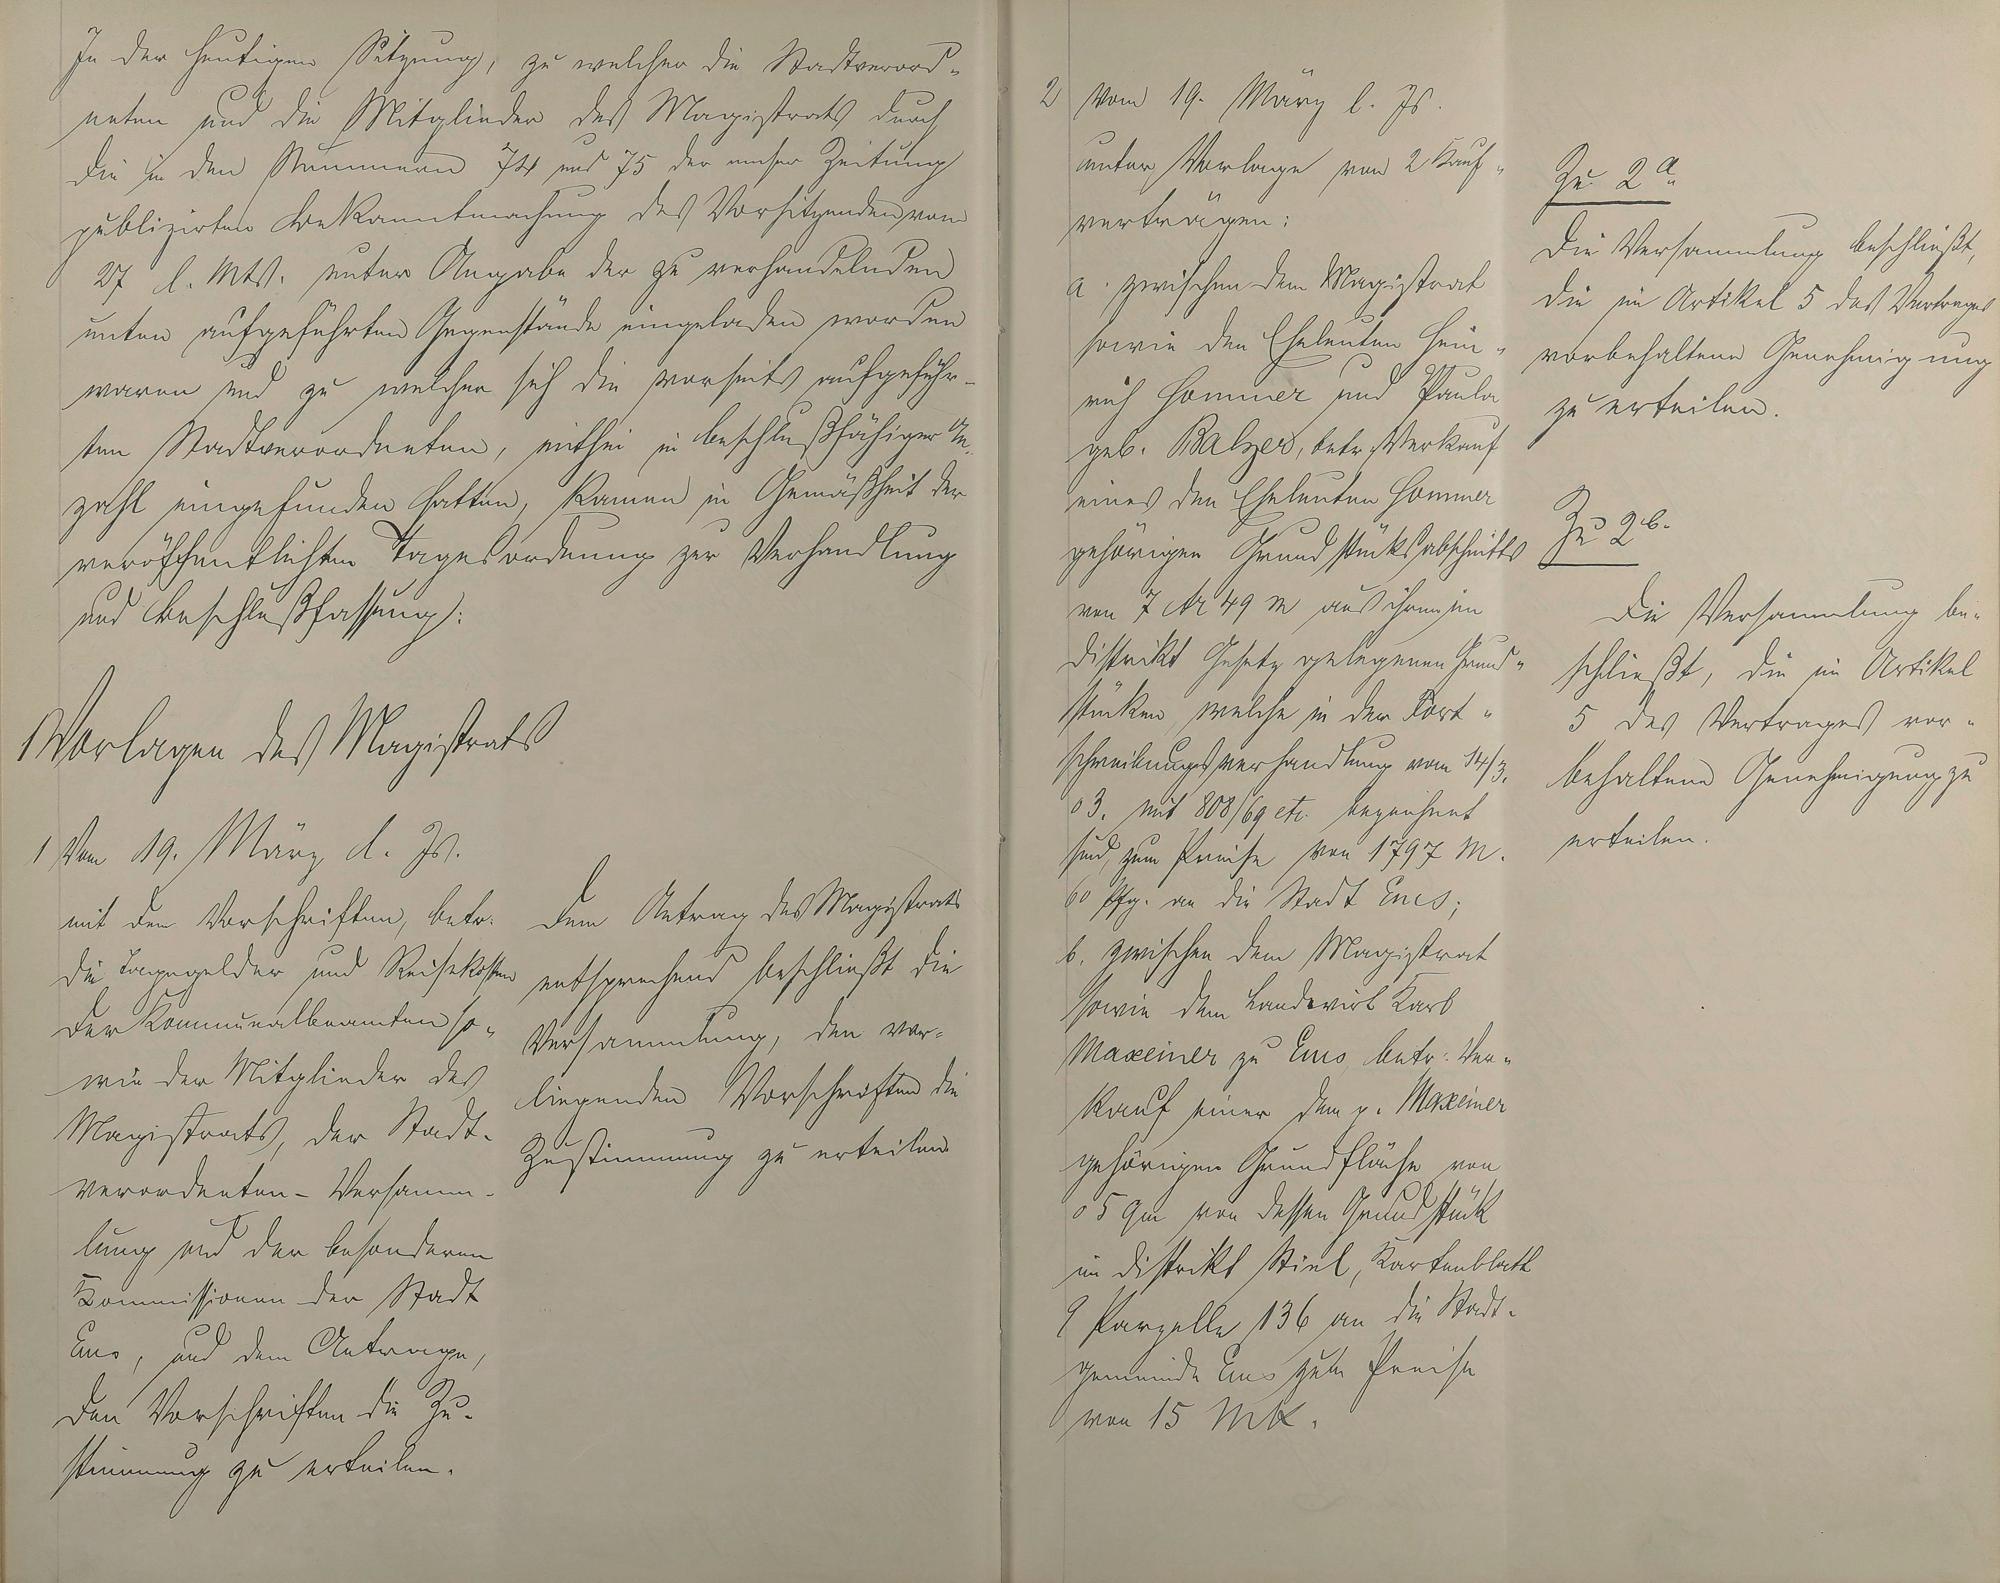 In der heutigen Sitzung, zu welcher die Stadtverord-
neten und die Mitglieder des Magistrats durch
die in den Nummern 74 und 75 der Emser Zeitung
publizirten Bekanntmachung des Vorsitzenden vom
27 l. Mts. unter Angabe der zu verhandelnden
unten aufgeführten Gegenstände eingeladen worden
waren und zu welcher sich die vorseits aufgeführ-
ten Stadtverordneten, mithin in beschlußfähiger An-
zahl eingefunden hatten, kamen in Gemäßheit der
veröffentlichten Tagesordnung zur Verhandlung
und Beschlußfassung:
Vorlagen des Magistrats
1 Vom 19. März d. Js.
mit den Vorschriften, betr.
die Tagegelder und Reisekosten
der Kommunalbeamten so-
wie der Mitglieder des
Magistrats, der Stadt-
verordneten-Versamm-
lung und der besonderen
Kommissionen der Stadt
Ems, und dem Antrage,
den Vorschriften die Zu-
stimmung zu erteilen.
Dem Antrag des Magistrats
entsprechend beschließt die
Versammlung, den vor-
liegenden Vorschriften die
Zustimmung zu erteilen
2 Vom 19. März l. Js.
unter Vorlage von 2 Kauf-
verträgen:
a. zwischen dem Magistrat
sowie den Eheleuten Hein-
rich Hommer und Paula
geb. Balzer, betr. Verkauf
eines den Eheleuten Hommer
gehörigen Grundstücksabschnitts
von 7 Ar 49 m aus ihren im
Distrikt Gesetz gelegenen Grund-
stücken, welche in der Fort-
schreibungsverhandlung vom 14/3.
03. mit 808/69 etc. bezeichnet
sind, zum Preise von 1797 M.
60 Pfg. an die Stadt Ems;
b. zwischen dem Magistrat
sowie dem Landwirt Karl
Maxeiner zu Ems, betr. Ver-
kauf einer dem p. Maxeiner
gehörigen Grundfläche von
05 qm von dessen Grundstück
im Distrikt Stiel, Kartenblatt
9 Parzelle 136 an die Stadt-
gemeinde Ems zum Preise
von 15 Mk.
Zu 2 a.
Die Versammlung beschließt,
die im Artikel 5 des Vertrages
vorbehaltene Genehmigung
zu erteilen.
Zu 2 b.
Die Versammlung be-
schließt, die im Artikel
5 des Vertrages vor-
behaltene Genehmigung zu
erteilen.